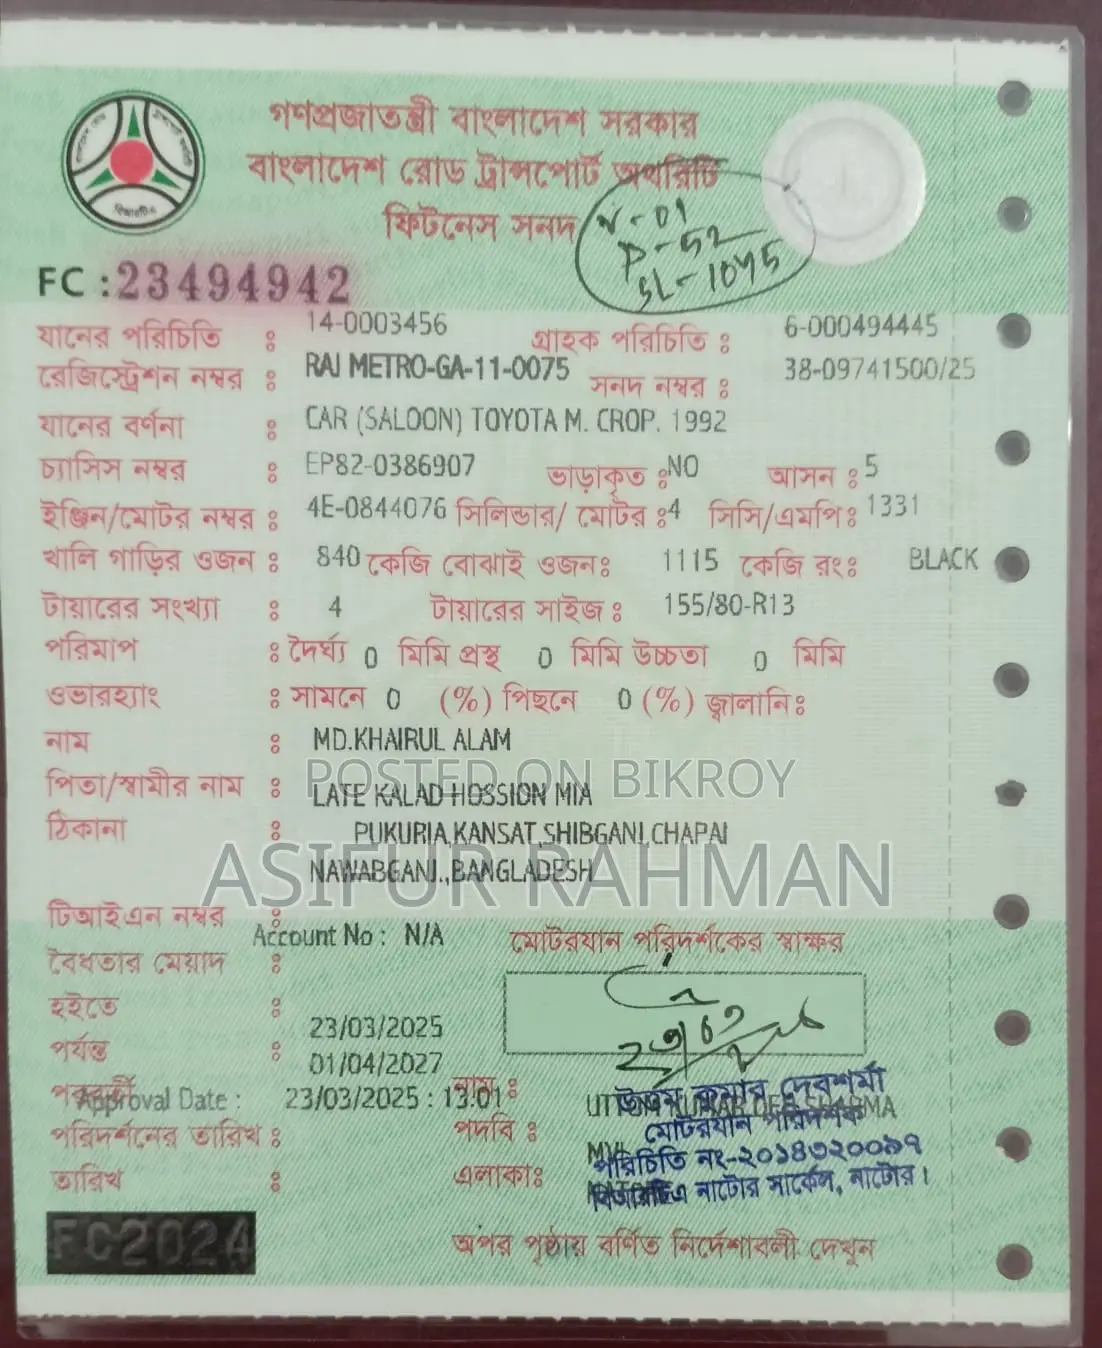 গণপ্রজাতন্ত্রী বাংলাদেশ সরকার
বাংলাদেশ রোড ট্রান্সপোর্ট অথরিটি
ফিটনেস সনদ
V-01
P-52
SL-1045
FC :23494942
যানের পরিচিতি : 14-0003456 গ্রাহক পরিচিতি : 6-000494445
রেজিস্ট্রেশন নম্বর : RAJ METRO-GA-11-0075 সনদ নম্বর : 38-09741500/25
যানের বর্ণনা : CAR (SALOON) TOYOTA M. CROP. 1992
চ্যাসিস নম্বর : EP82-0386907 ভাড়াকৃত :NO আসন : 5
ইঞ্জিন/মোটর নম্বর : 4E-0844076 সিলিন্ডার/ মোটর :4 সিসি/এমপি: 1331
খালি গাড়ির ওজন : 840 কেজি বোঝাই ওজন: 1115 কেজি রং: BLACK
টায়ারের সংখ্যা : 4 টায়ারের সাইজ : 155/80-R13
পরিমাপ : দৈর্ঘ্য 0 মিমি প্রস্থ 0 মিমি উচ্চতা 0 মিমি
ওভারহ্যাং : সামনে 0 (%) পিছনে 0 (%) জ্বালানি:
নাম : MD.KHAIRUL ALAM
POSTED ON BIKROY
পিতা/স্বামীর নাম : LATE KALAD HOSSION MIA
ঠিকানা : PUKURIA,KANSAT,SHIBGANJ,CHAPAI
NAWABGANJ.,BANGLADESH
ASIFUR RAHMAN
টিআইএন নম্বর :
Account No : N/A মোটরযান পরিদর্শকের স্বাক্ষর
বৈধতার মেয়াদ :
হইতে : 23/03/2025
পর্যন্ত : 01/04/2027
পরবর্তী Approval Date : 23/03/2025 : 13:01 নাম : UTTOM KUMAR DEB SHARMA
উত্তম কুমার দেবশর্মা
পরিদর্শনের তারিখ : পদবি :
মোটরযান পরিদর্শক
পরিচিতি নং-২০১৪৭২০০৯৭
তারিখ : এলাকা:
বিআরটিএ নাটোর সার্কেল, নাটোর।
FC2024
অপর পৃষ্ঠায় বর্ণিত নির্দেশাবলী দেখুন